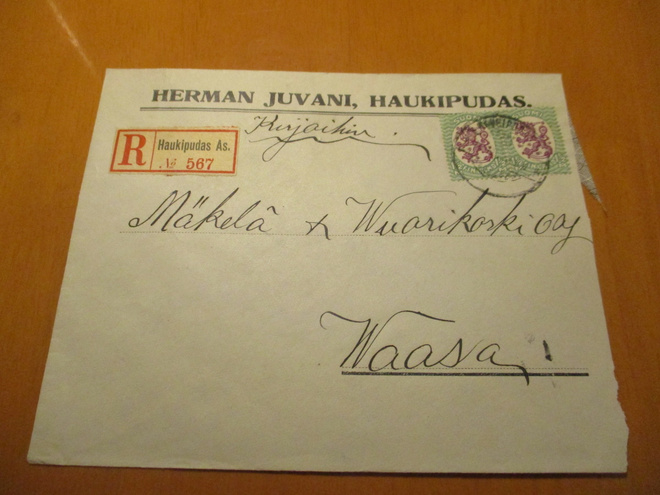 HERMAN JUVANI, HAUKIPUDAS.
Kirjaihin.
R Haukipudas As.
№ 567
Mäkelä & Wuorikoski Oy
Waasa